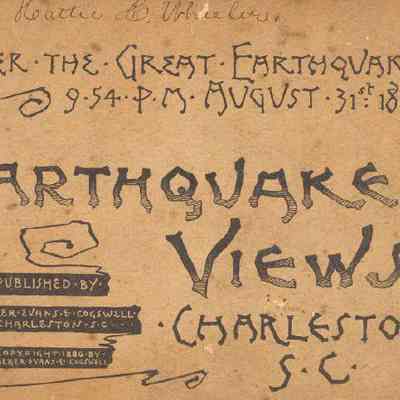 Hattie E. Wheeler.
ER · THE · GREAT · EARTHQUAK
9·54· P.M. AUGUST · 31st 18
ARTHQUAKE
VIEWS
PUBLISHED · BY ·
ER · EVANS · & COGSWELL
CHARLESTON · S · C ·
· CHARLESTO
COPYRIGHT 1886 · BY
EVANS · & COGSWELL
S · C ·